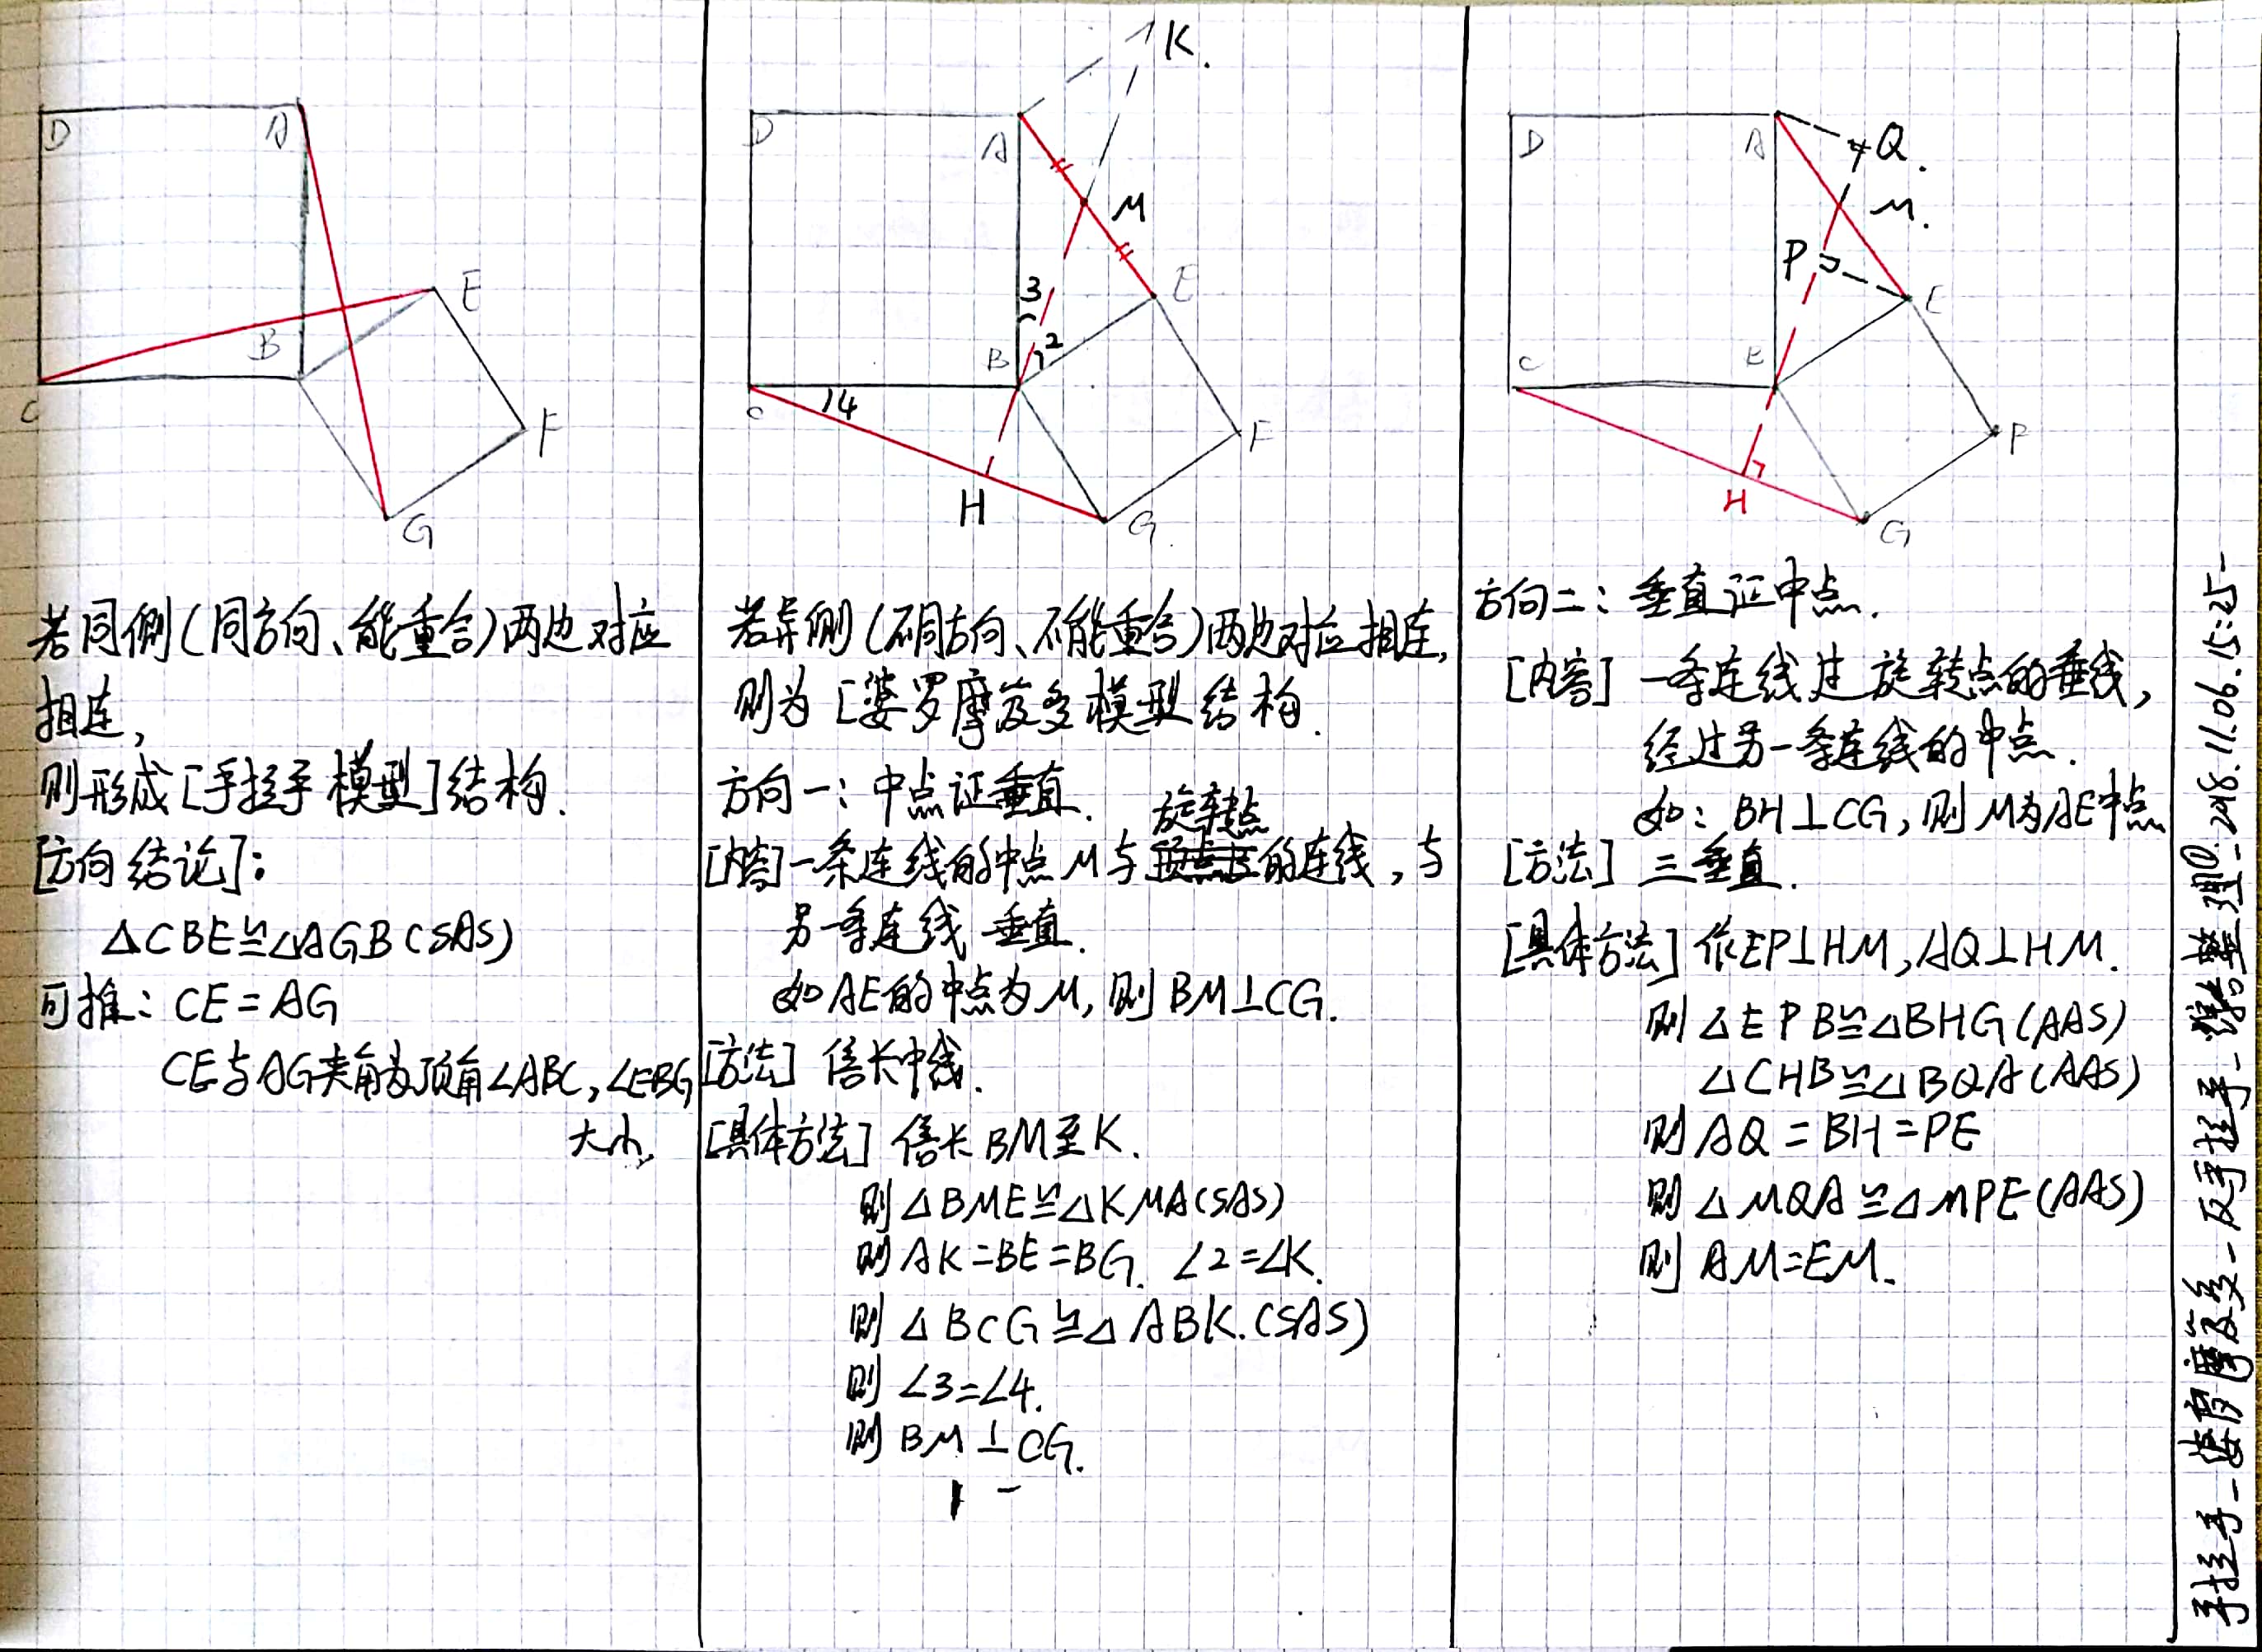 D
A
B
C
E
F
G
若同侧(同方向、能重合)两边对应
相连,
则形成[手拉手模型]结构.
[方向结论]:
△CBE≌△AGB(SAS)
可推: CE=AG
CE与AG夹角为顶角∠ABC,∠EBG
大小.
K.
D
A
M
3
2
B
E
C
14
H
G.
F
若异侧(不同方向、不能重合)两边对应相连,
则为[婆罗摩笈多模型结构.
方向一: 中点证垂直.
旋转点
[内容]一条连线的中点M与的连线,与
另一条连线垂直.
如AE的中点为M,则BM⊥CG.
[方法] 倍长中线.
[具体方法] 倍长BM至K.
则△BME≌△KMA(SAS)
则AK=BE=BG. ∠2=∠K.
则△BCG≌△ABK.(SAS)
则∠3=∠4.
则BM⊥CG.
D
A
Q.
M.
P
E
C
B
H
G
F
方向二: 垂直证中点.
[内容] 一条连线过旋转点的垂线,
经过另一条连线的中点.
如: BH⊥CG,则M为AE中点
[方法] 三垂直.
[具体方法] 作EP⊥HM,AQ⊥HM.
则△EPB≌△BHG(AAS)
△CHB≌△BQA(AAS)
则AQ=BH=PE
则△MQA≌△MPE(AAS)
则AM=EM.
手拉手-婆罗摩笈多-反手拉手-结构整理@.2018.11.06.15:25-